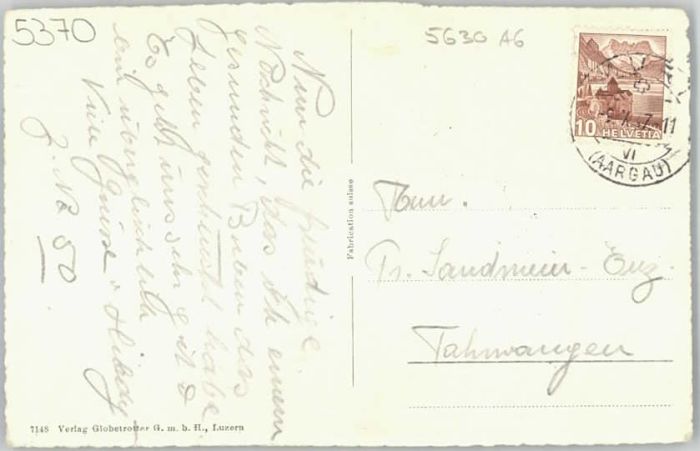 5370
5630 AG
10 HELVETIA
VI
(AARGAU)
Nur die freudige
Nachricht, das ich einem
gesunden Buben das
Leben geschenkt habe
Es geht uns sehr gut &
Viele Grüsse
Z. No 50
Fabrication suisse
Herrn.
Fr. Sandmeier-Enz
Fahrwangen
7148 Verlag Globetrotter G. m. b. H., Luzern